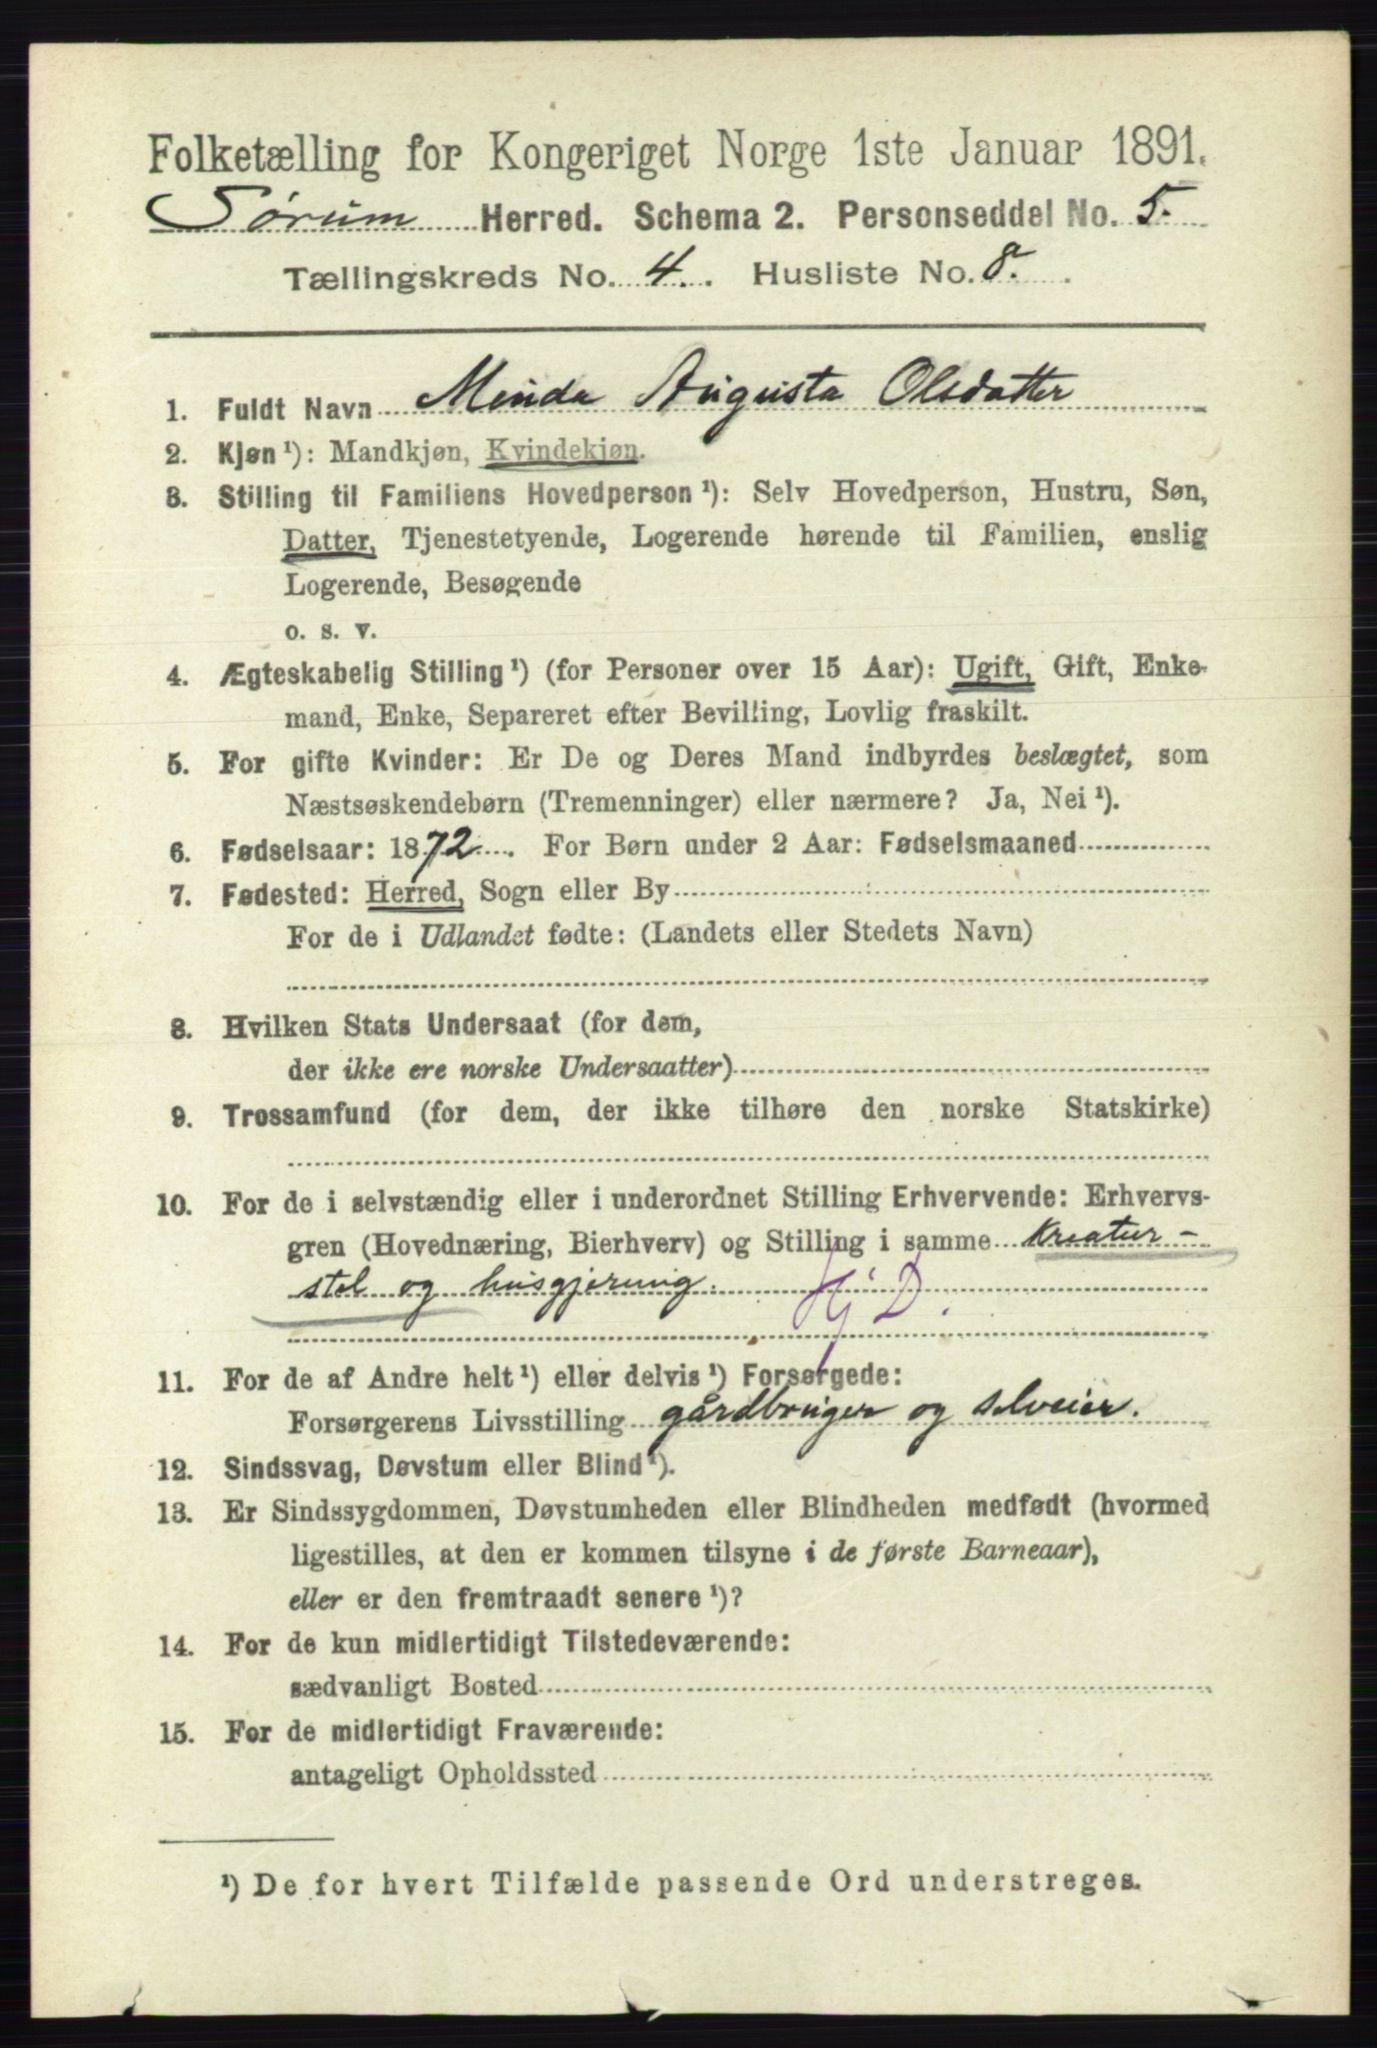 Folketælling for Kongeriget Norge 1ste Januar 1891.
Sørum Herred. Schema 2. Personseddel No. 5.
Tællingskreds No. 4. Husliste No. 8.
1. Fuldt Navn Minda Augusta Olsdatter
2. Kjøn ¹): Mandkjøn, Kvindekjøn.
3. Stilling til Familiens Hovedperson ¹): Selv Hovedperson, Hustru, Søn,
Datter, Tjenestetyende, Logerende hørende til Familien, enslig
Logerende, Besøgende
o. s. v.
4. Ægteskabelig Stilling ¹) (for Personer over 15 Aar): Ugift, Gift, Enke-
mand, Enke, Separeret efter Bevilling, Lovlig fraskilt.
5. For gifte Kvinder: Er De og Deres Mand indbyrdes beslægtet, som
Næstsøskendebørn (Tremenninger) eller nærmere? Ja, Nei ¹).
6. Fødselsaar: 1872. For Børn under 2 Aar: Fødselsmaaned
7. Fødested: Herred, Sogn eller By
For de i Udlandet fødte: (Landets eller Stedets Navn)
8. Hvilken Stats Undersaat (for dem,
der ikke ere norske Undersaatter)
9. Trossamfund (for dem, der ikke tilhøre den norske Statskirke)
10. For de i selvstændig eller i underordnet Stilling Erhvervende: Erhvervs-
gren (Hovednæring, Bierhverv) og Stilling i samme Kreatur-
stel og husgjerning. Hj D.
11. For de af Andre helt ¹) eller delvis ¹) Forsørgede:
Forsørgerens Livsstilling gårdbruger og selveier.
12. Sindssvag, Døvstum eller Blind ¹).
13. Er Sindssygdommen, Døvstumheden eller Blindheden medfødt (hvormed
ligestilles, at den er kommen tilsyne i de første Barneaar),
eller er den fremtraadt senere ¹)?
14. For de kun midlertidigt Tilstedeværende:
sædvanligt Bosted
15. For de midlertidigt Fraværende:
antageligt Opholdssted
¹) De for hvert Tilfælde passende Ord understreges.